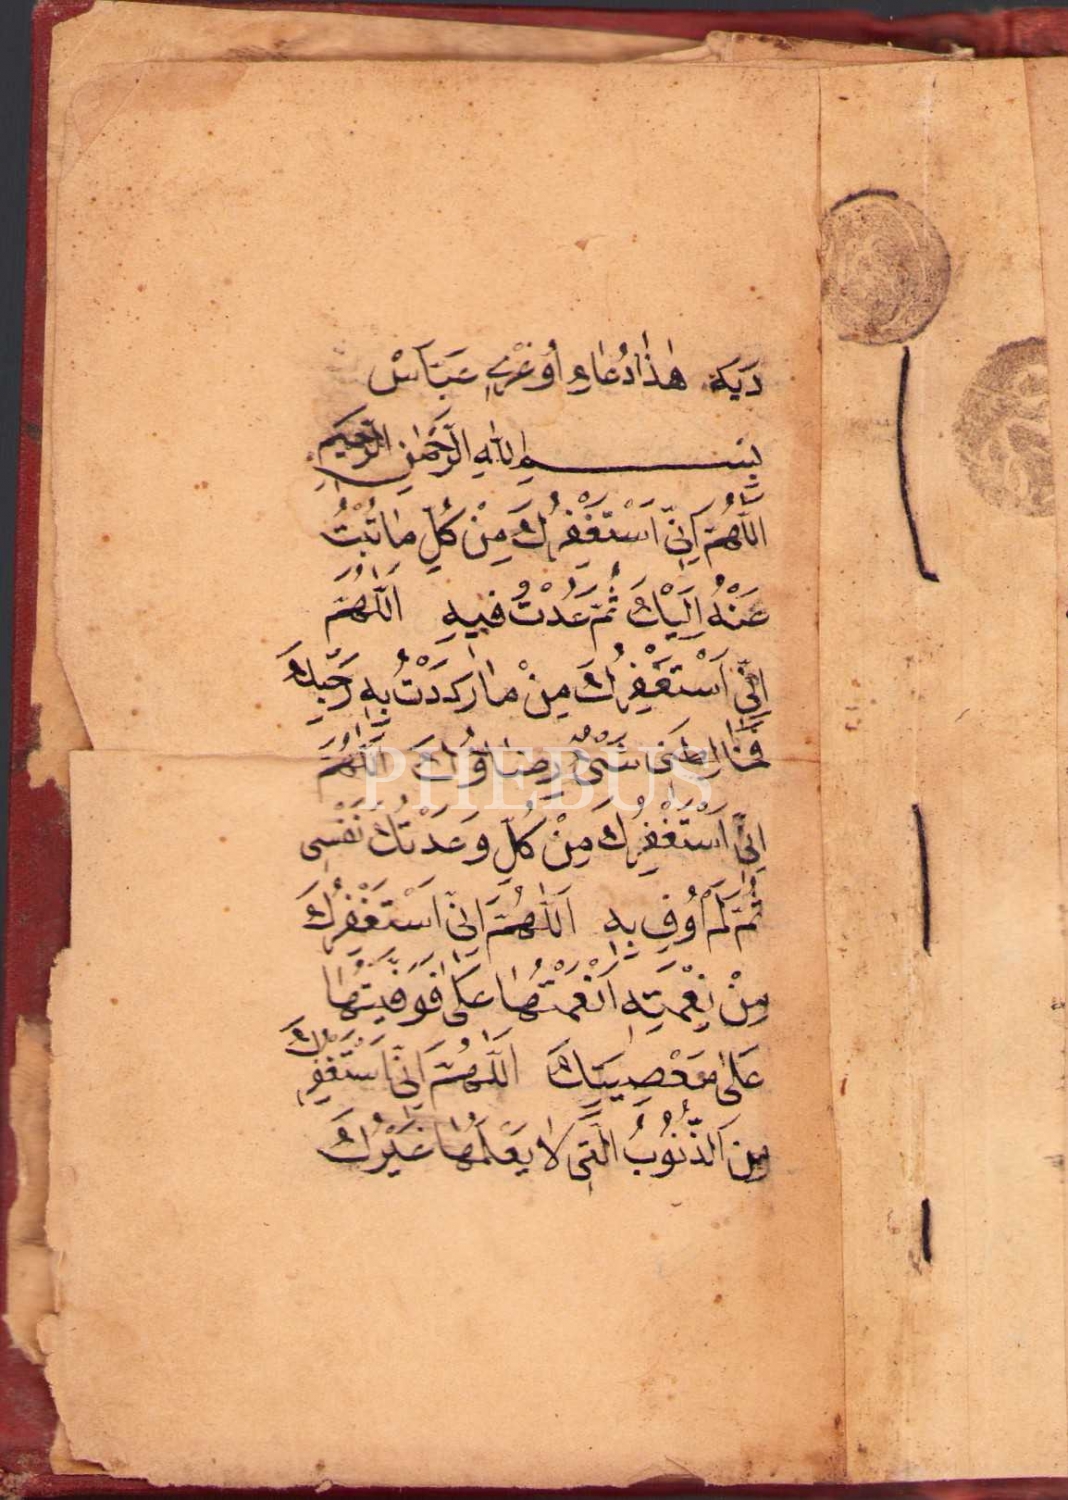 دَيَكَه هٰذَا دُعَاءِ اُوغْرِي عَبَّاسْ
بِسْمِ اللّٰهِ الرَّحْمٰنِ الرَّحِيمِ
اَللّٰهُمَّ اِنِّي اَسْتَغْفِرُكَ مِنْ كُلِّ مَا تُبْتُ
عَنْهُ اِلَيْكَ ثُمَّ عَدْتُ فِيهِ اَللّٰهُمَّ
اِنِّي اَسْتَغْفِرُكَ مِنْ مَا اَرَدْتُ بِهِ
شَيْئٌ رِضَاؤُكَ اَللّٰهُمَّ
اِنِّي اَسْتَغْفِرُكَ مِنْ كُلِّ وَعَدْتُكَ نَفْسِي
ثُمَّ لَمْ اُوفِ بِهِ اَللّٰهُمَّ اِنِّي اَسْتَغْفِرُكَ
مِنْ نِعْمَتِهِ اَنْعَمْتَهَا عَلَى فَوَفَّيْتُهَا
عَلَى مَعْصِيَتِكَ اَللّٰهُمَّ اِنِّي اَسْتَغْفِرُكَ
مِنَ الذُّنُوبُ الَّتِي لَا يَعْلَمُهَا غَيْرُكَ
PHEBUS